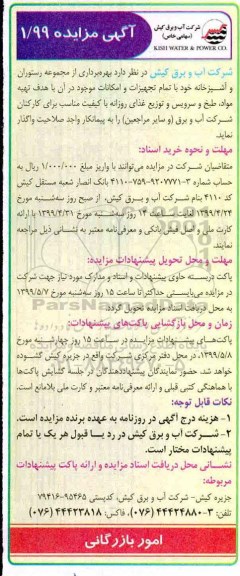 شرکت آب و برق کیش
(سهامی خاص)
KISH WATER & POWER CO.
آگهی مزایده ۱/۹۹
شرکت آب و برق کیش در نظر دارد بهره‌برداری از مجموعه رستوران
و آشپزخانه خود با تمام تجهیزات و امکانات موجود در آن با هدف تهیه
مواد، طبخ و سرویس و توزیع غذای روزانه با کیفیت مناسب برای کارکنان
شرکت آب و برق (و سایر مراجعین) را به پیمانکار واجد صلاحیت واگذار
نماید.
مهلت و نحوه خرید اسناد:
متقاضیان شرکت در مزایده می‌توانند با واریز مبلغ ۱/۰۰۰/۰۰۰ ریال به
حساب شماره ۳-۹۲۰۷۷۷۱-۷۵۹-۴۱۱۰ بانک انصار شعبه مستقل کیش
کد ۴۱۱۰ بنام شرکت آب و برق کیش، از صبح روز سه‌شنبه مورخ
۱۳۹۹/۴/۲۴ لغایت ساعت ۱۴ روز سه‌شنبه مورخ ۱۳۹۹/۴/۳۱ با ارائه
کارت ملی و اصل فیش بانکی و معرفی‌نامه معتبر به نشانی ذیل مراجعه
نمایند.
مهلت و محل تحویل پیشنهادات مزایده:
پاکت دربسته حاوی پیشنهادات و اسناد و مدارک مورد نیاز جهت شرکت
در مزایده می‌بایستی حداکثر تا ساعت ۱۵ روز سه‌شنبه مورخ ۱۳۹۹/۵/۷
به محل دریافت اسناد مزایده تحویل گردد.
زمان و محل بازگشایی پاکت‌های پیشنهادات:
پاکت‌های پیشنهادات مزایده در ساعت ۱۵ روز چهارشنبه مورخ
۱۳۹۹/۵/۸، در محل دفتر مرکزی شرکت واقع در جزیره کیش گشوده
خواهد شد. حضور نمایندگان پیشنهاددهندگان در جلسه گشایش پاکت‌ها
با هماهنگی کتبی قبلی و ارائه معرفی‌نامه معتبر و کارت ملی بلامانع است.
نکات قابل توجه:
۱- هزینه درج آگهی در روزنامه به عهده برنده مزایده است.
۲- شرکت آب و برق کیش در رد یا قبول هر یک یا تمام
پیشنهادات مختار است.
نشانی محل دریافت اسناد مزایده و ارائه پاکت پیشنهادات
مربوطه:
جزیره کیش- شرکت آب و برق کیش، کدپستی ۹۵۴۶۵-۷۹۴۱۶
تلفن: ۳-۴۴۴۲۴۸۸۰ (۰۷۶)، فاکس: ۴۴۴۲۳۸۱۸ (۰۷۶)
امور بازرگانی